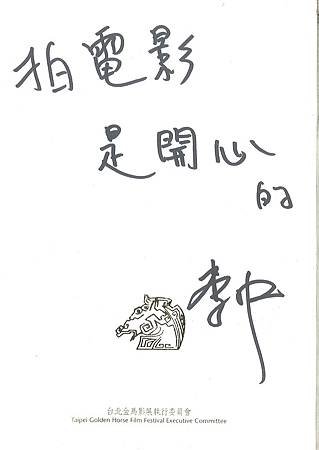 拍電影
是開心
的
李中
台北金馬影展執行委員會
Taipei Golden Horse Film Festival Executive Committee